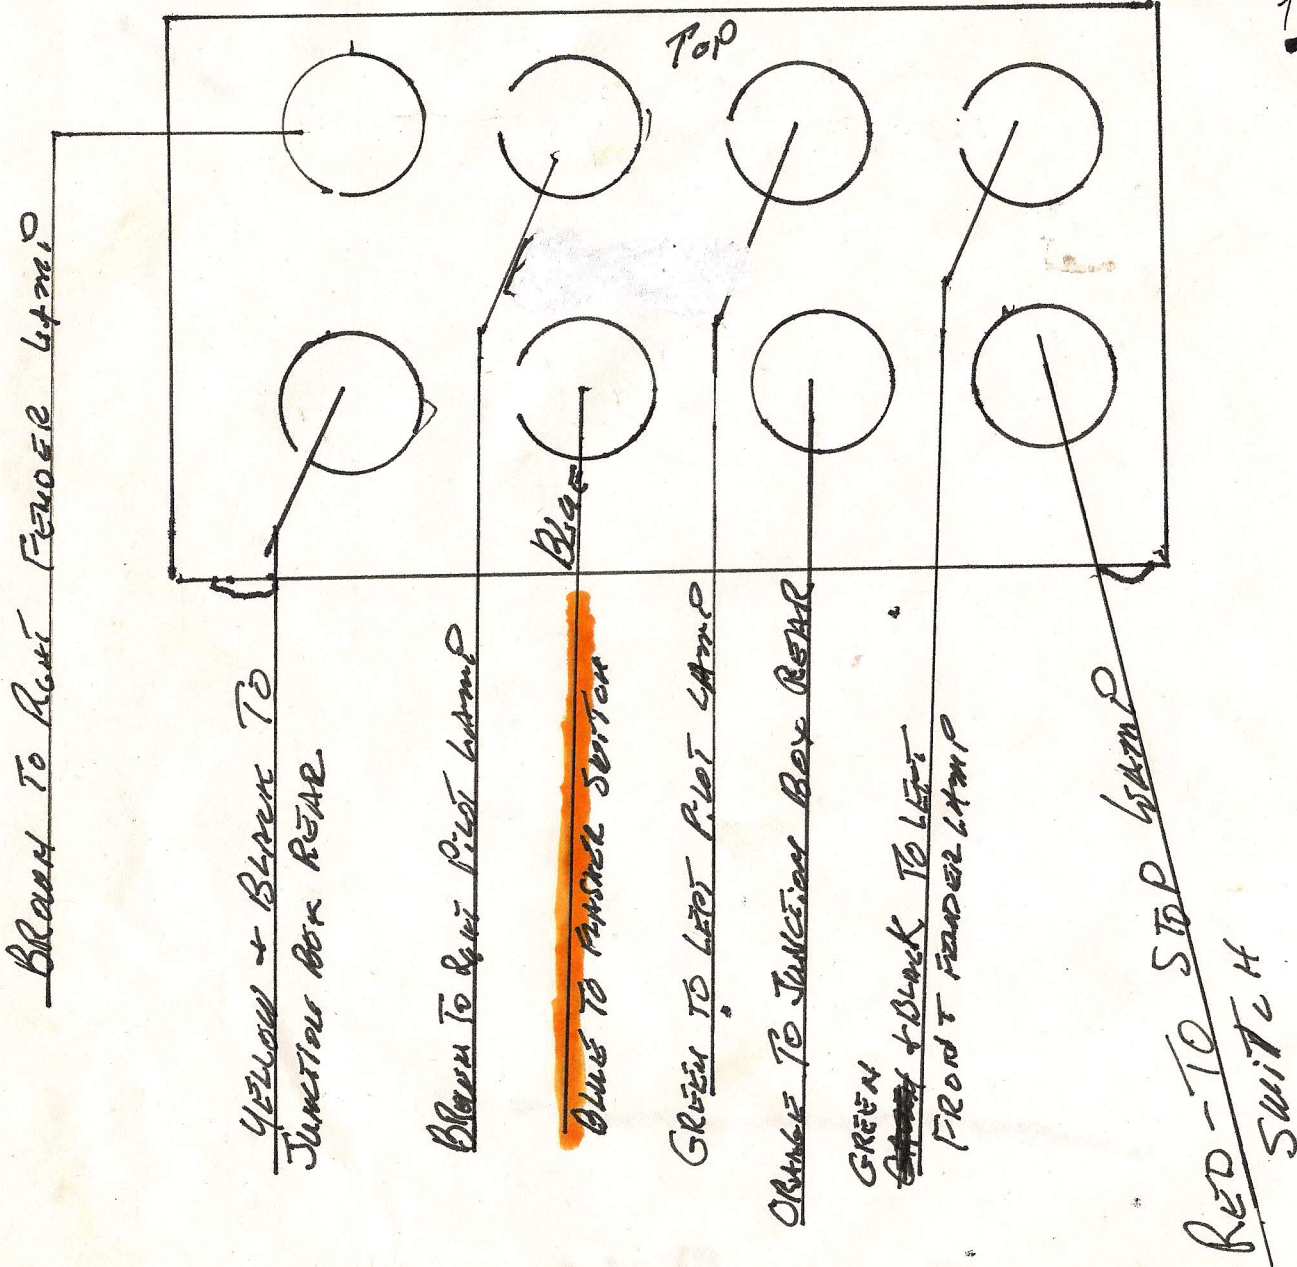 TOP
BROWN TO RGHT FENDER LAMP
YELLOW + BLACK TO
JUNCTION BOX REAR
BROWN TO RGHT PILOT LAMP
BLUE
BLUE TO FLASHER SWITCH
GREEN TO LEFT PILOT LAMP
ORANGE TO JUNCTION BOX REAR
GREEN
+ BLACK TO LEFT
FRONT FENDER LAMP
RED - TO STOP LAMP
SWITCH